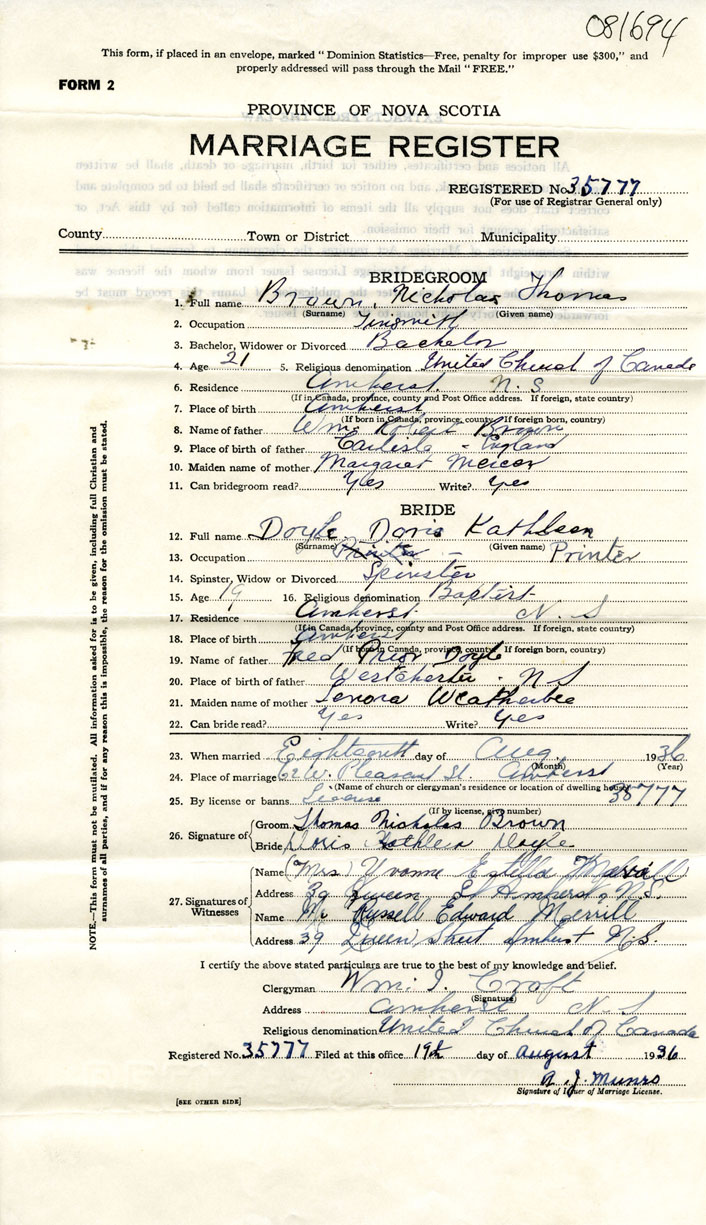 081694
This form, if placed in an envelope, marked "Dominion Statistics—Free, penalty for improper use $300," and
properly addressed will pass through the Mail "FREE."
FORM 2
PROVINCE OF NOVA SCOTIA
MARRIAGE REGISTER
REGISTERED No. 35777
(For use of Registrar General only)
County Town or District Municipality
BRIDEGROOM
1. Full name Brown, Nicholas Thomas
(Surname) (Given name)
2. Occupation Tinsmith
3. Bachelor, Widower or Divorced Bachelor
4. Age 21 5. Religious denomination United Church of Canada
6. Residence Amherst, N. S
(If in Canada, province, county and Post Office address. If foreign, state country)
7. Place of birth Amherst
(If born in Canada, province, county. If foreign born, county)
8. Name of father Wm. Robert Brown
9. Place of birth of father Carlisle - England
10. Maiden name of mother Margaret Mercer
11. Can bridegroom read? Yes Write? Yes
BRIDE
12. Full name Doyle Doris Kathleen
(Surname) (Given name)
13. Occupation Printer
14. Spinster, Widow or Divorced Spinster
15. Age 19 16. Religious denomination Baptist
17. Residence Amherst N. S
(If in Canada, province, county and Post Office address. If foreign, state country)
18. Place of birth Amherst
(If born in Canada, province, county. If foreign born, county)
19. Name of father Fred Prior Doyle
20. Place of birth of father Westchester - N S
21. Maiden name of mother Lenora Weatherbee
22. Can bride read? Yes Write? Yes
23. When married Eighteenth day of Aug 1936
(Month) (Year)
24. Place of marriage Pleasant St. Amherst
(Name of church or clergyman's residence or location of dwelling house)
25. By license or banns License 35777
(If by license, give number)
26. Signature of Groom Thomas Nicholas Brown
Bride Doris Kathleen Doyle
27. Signatures of Witnesses
Name (Mrs) Yvonne Estella
Address 39 Queen St Amherst, N.S.
Name Mr Russell Edward Merrill
Address 39 Queen Street Amherst N.S.
I certify the above stated particulars are true to the best of my knowledge and belief.
Clergyman Wm. I. Croft
(Signature)
Address Amherst N. S
Religious denomination United Church of Canada
Registered No. 35777 Filed at this office 19th day of August 1936
A. J. Munro
Signature of Issuer of Marriage License.
[SEE OTHER SIDE]
NOTE.—This form must not be mutilated. All information asked for is to be given, including full Christian and
surnames of all parties, and if for any reason this is impossible, the reason for the omission must be stated.